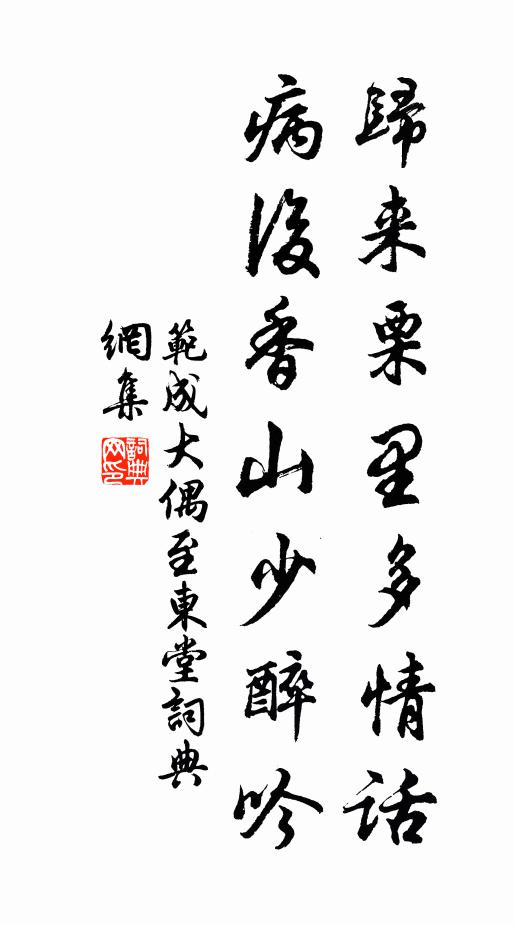 歸来栗里多情話
病後香山少醉吟
範成大偶至東堂詞典
網集
詞典
网印